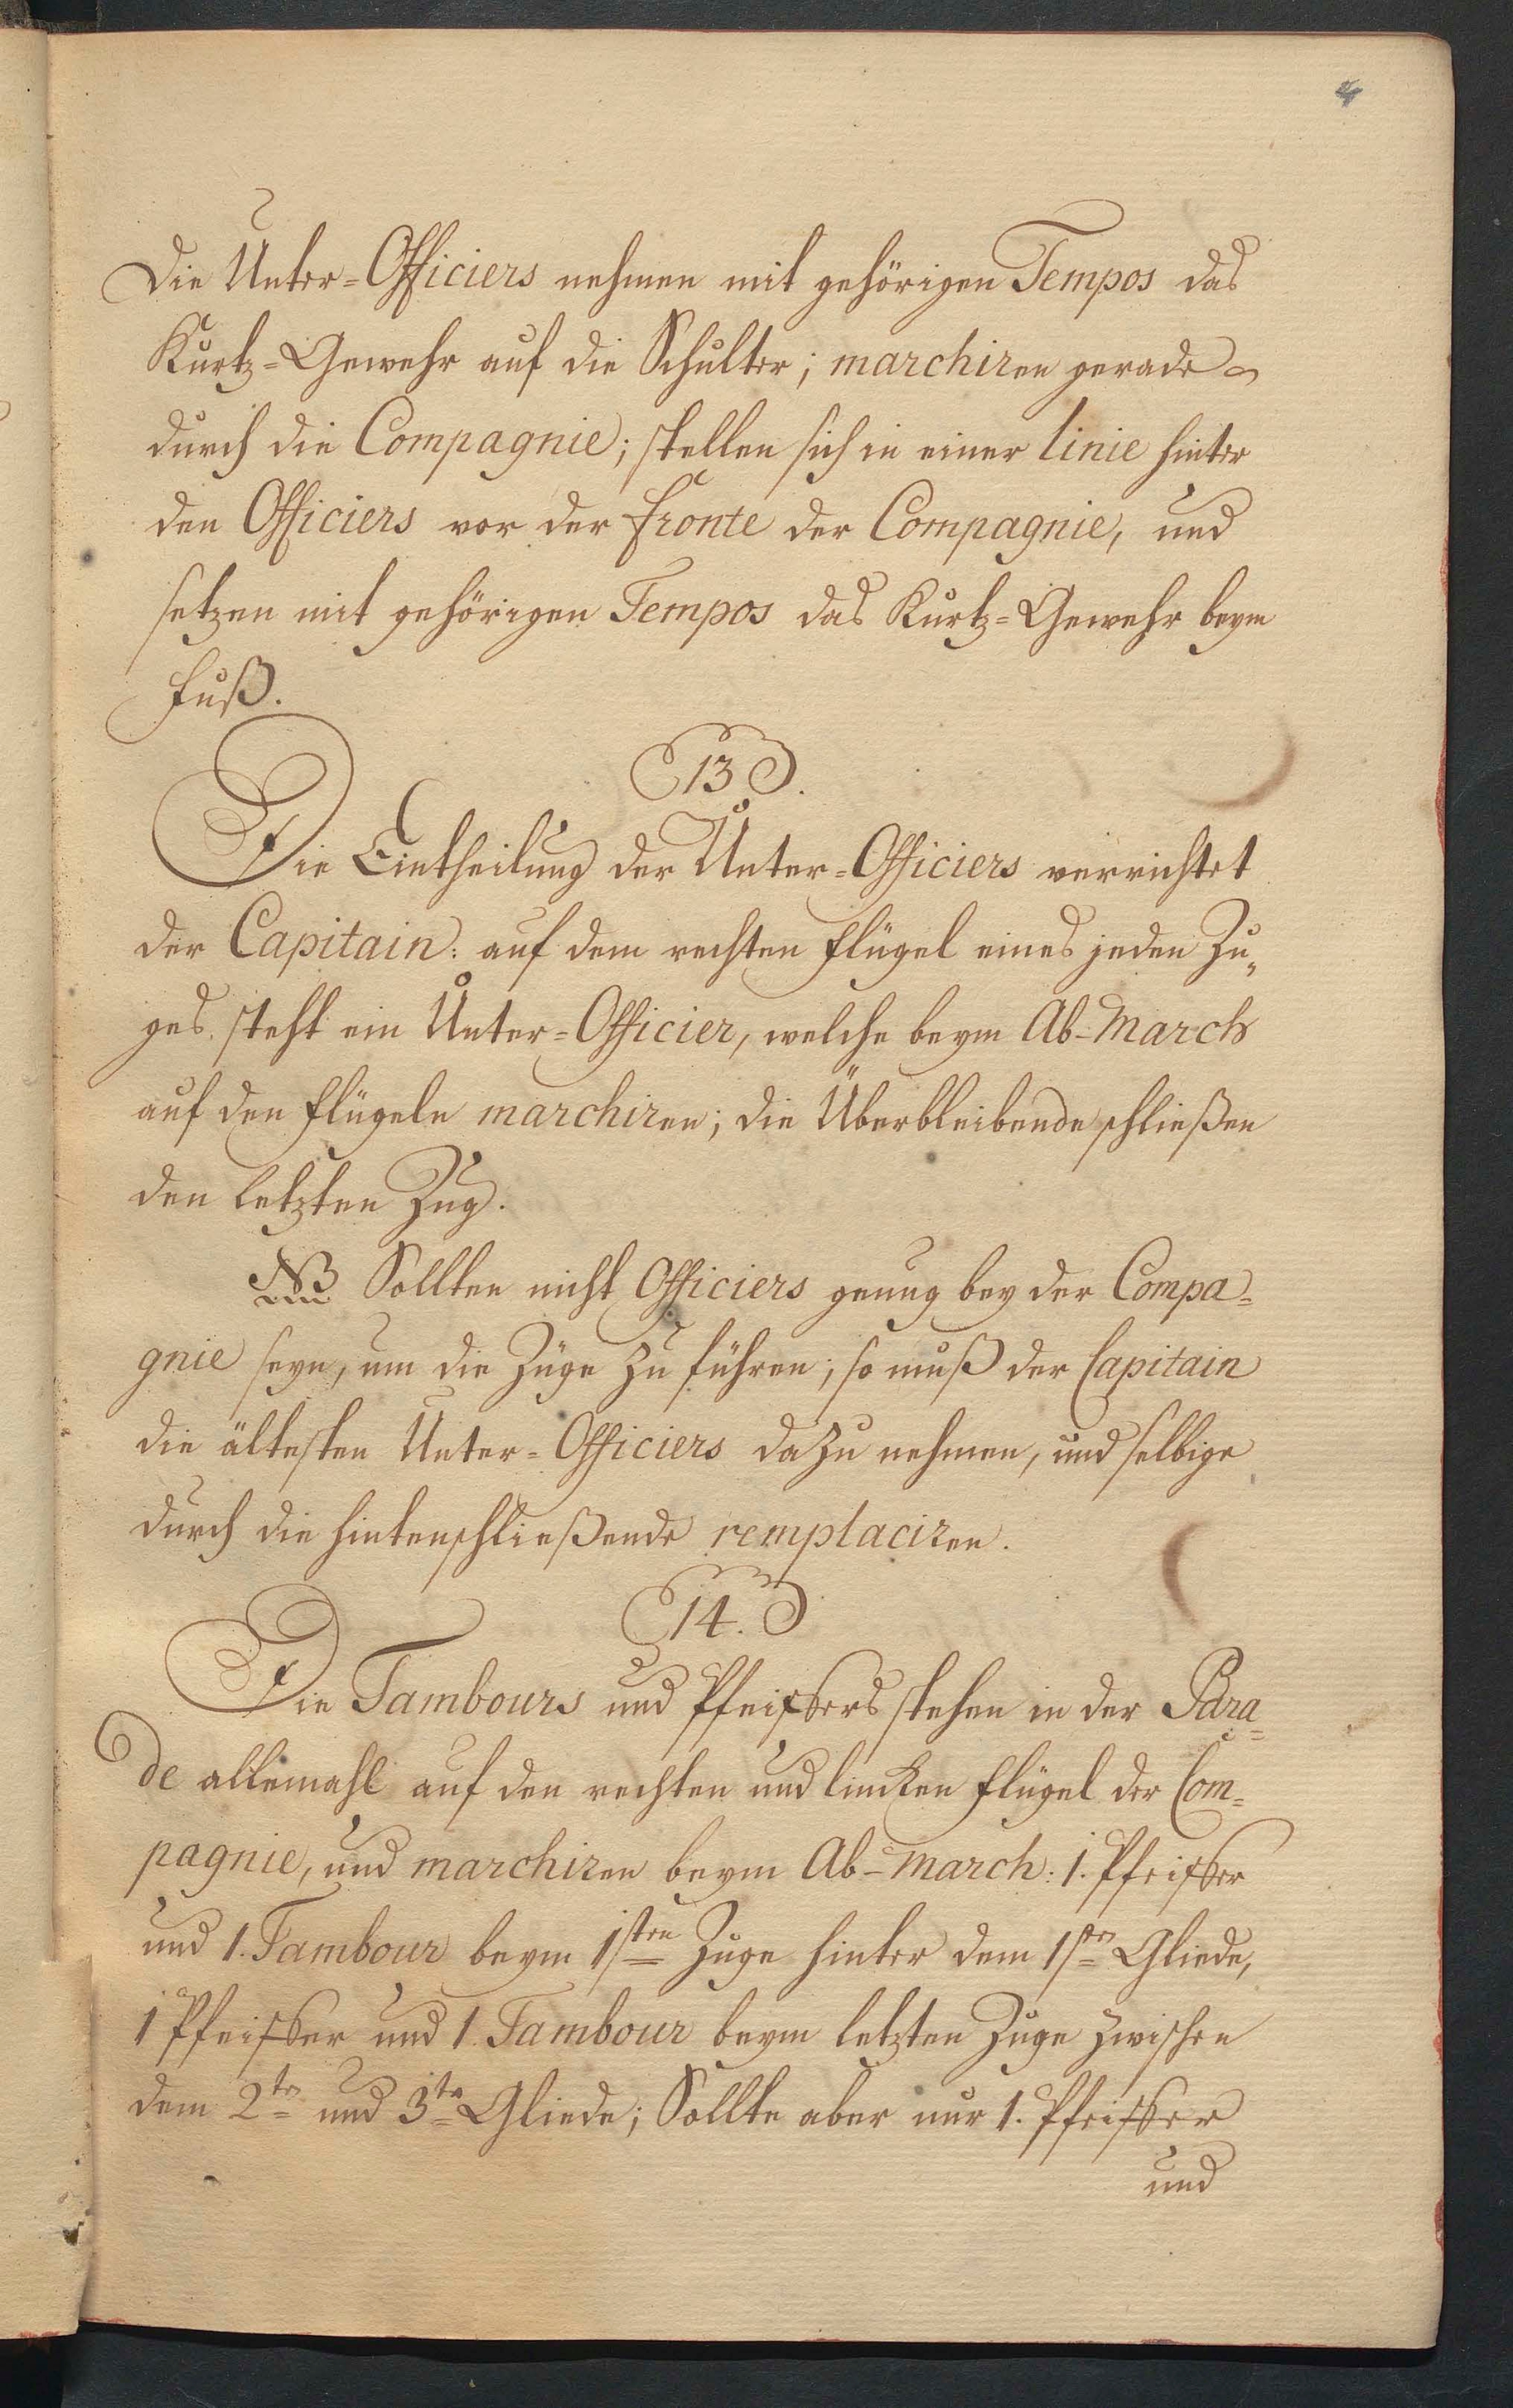 4
Die Unter-Officiers nehmen mit gehörigen Tempos das
Kurtz-Gewehr auf die Schulter; marchiren gerade
durch die Compagnie; stellen sich in einer linie hinter
den Officiers vor der fronte der Compagnie, und
setzen mit gehörigen Tempos das Kurtz-Gewehr beym
Fuß.
13.
Die Eintheilung der Unter-Officiers verrichtet
der Capitain: auf dem rechten Flügel eines jeden Zu„
ges steht ein Unter-Officier, welche beym Ab-March
auf den Flügeln marchiren; die Überbleibende schließen
den letzten Zug.
NB Sollten nicht Officiers genug bey der Compa=
gnie seyn, um die Züge zu führen; so muß der Capitain
die ältesten Unter-Officiers dazu nehmen, und selbige
durch die hintenschließende remplaciren.
14.
Die Tambours und Pfeiffers stehen in der Para=
de allemahl auf den rechten und lincken Flügel der Com=
pagnie, und marchiren beym Ab-March: 1. Pfeiffer
und 1. Tambour beym 1sten Zuge hinter dem 1sten Gliede,
1 Pfeiffer und 1 Tambour beym letzten Zuge zwischen
dem 2ten und 3ten Gliede; Sollte aber nur 1. Pfeiffer
und